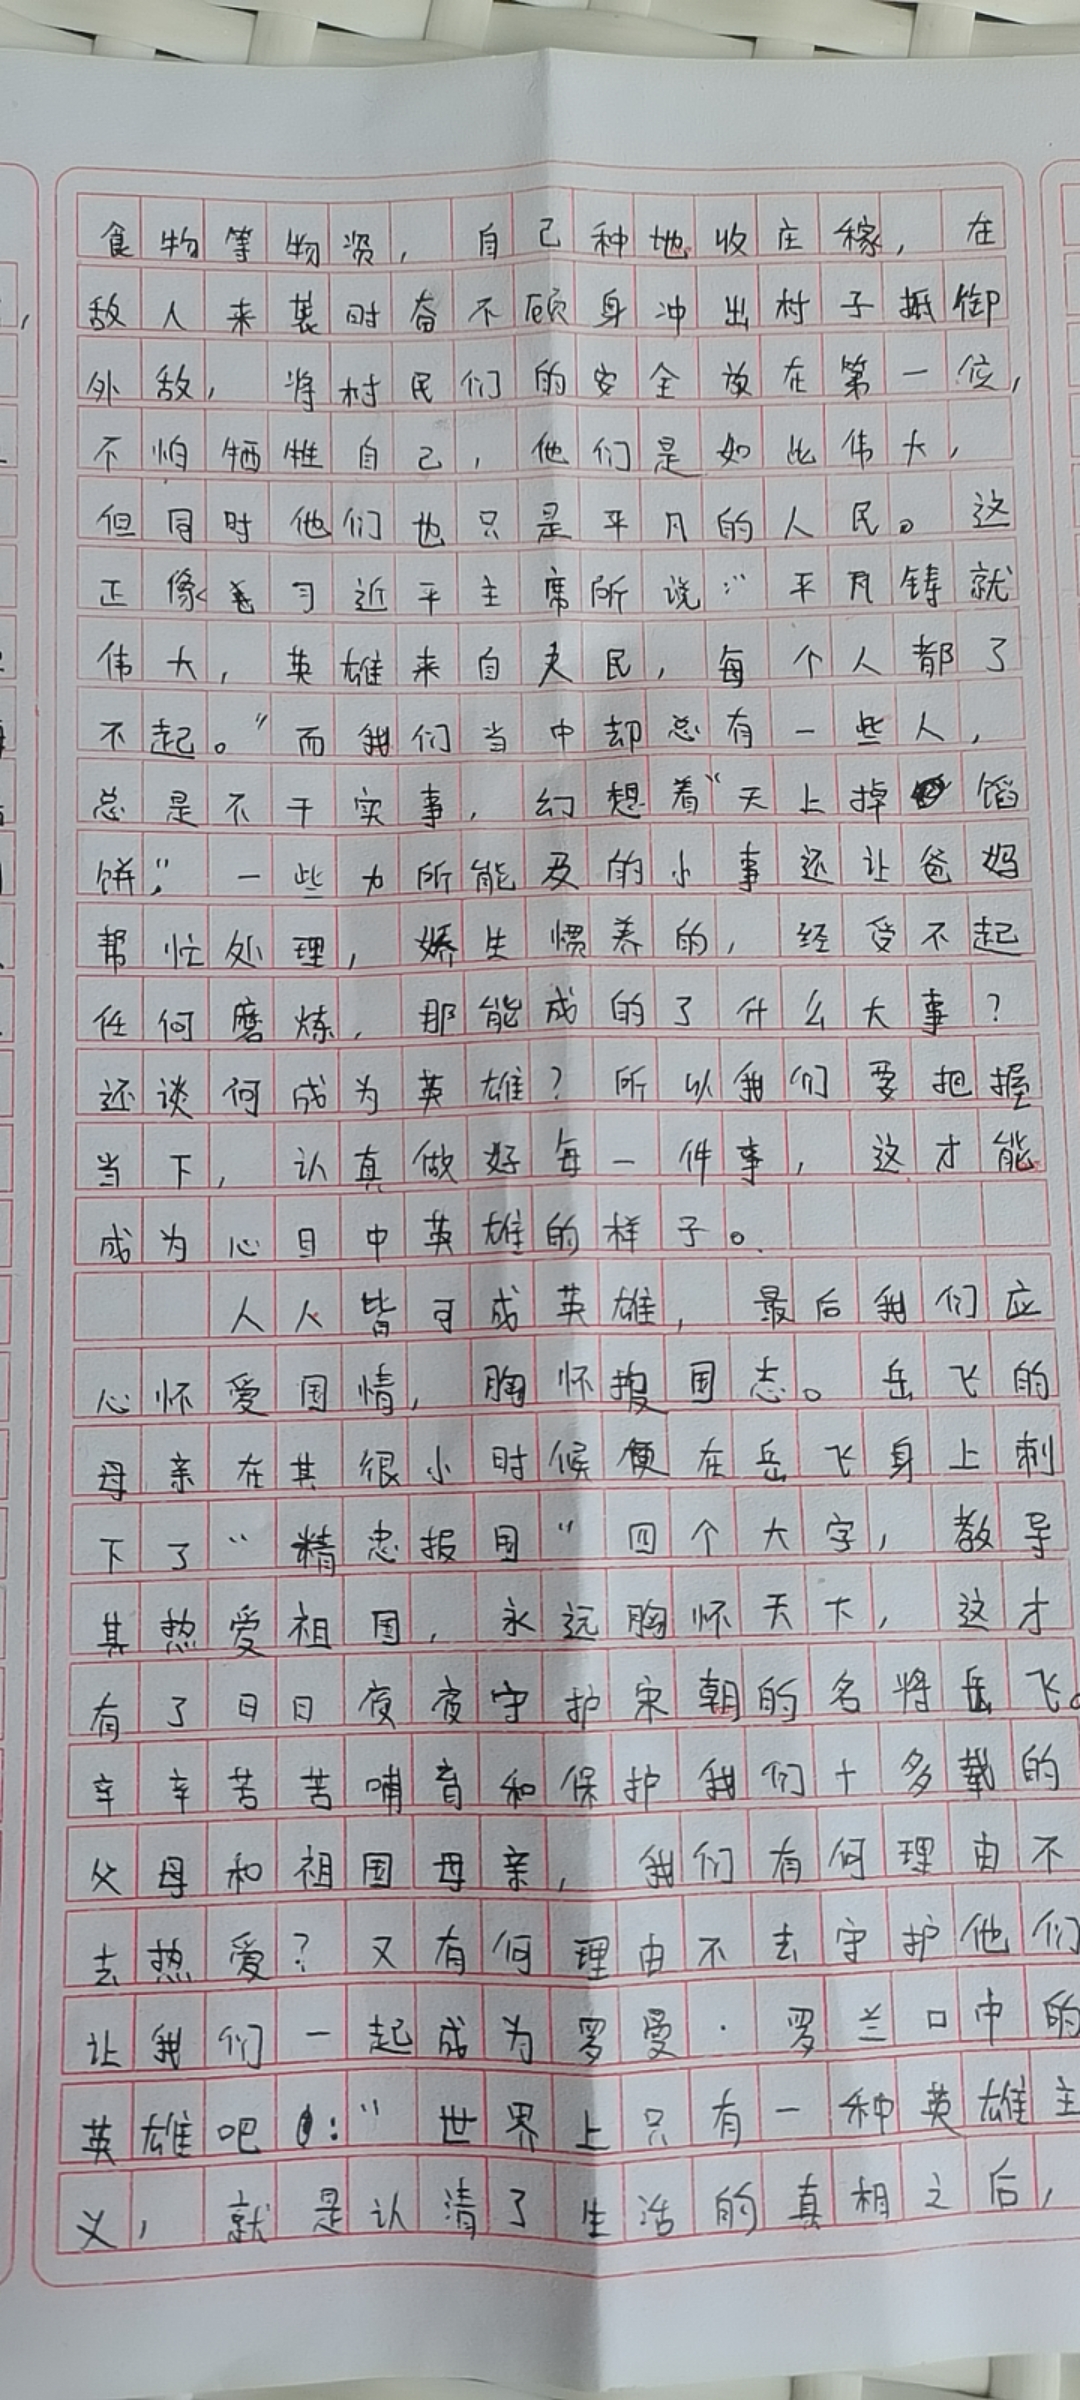 食物等物资，自己种地收庄稼，在
敌人来袭时奋不顾身冲出村子抵御
外敌，将村民们的安全放在第一位，
不怕牺牲自己，他们是如此伟大，
但同时他们也只是平凡的人民。这
正像习近平主席所说：“平凡铸就
伟大，英雄来自人民，每个人都了
不起。”而我们当中却总有一些人，
总是不干实事，幻想着“天上掉馅
饼”，一些力所能及的小事还让爸妈
帮忙处理，娇生惯养的，经受不起
任何磨炼，那能成的了什么大事？
还谈何成为英雄？所以我们要把握
当下，认真做好每一件事，这才能
成为心目中英雄的样子。
人人皆可成英雄，最后我们应
心怀爱国情，胸怀报国志。岳飞的
母亲在其很小时候便在岳飞身上刺
下了“精忠报国”四个大字，教导
其热爱祖国，永远胸怀天下，这才
有了日日夜夜守护宋朝的名将岳飞。
辛辛苦苦哺育和保护我们十多载的
父母和祖国母亲，我们有何理由不
去热爱？又有何理由不去守护他们
让我们一起成为罗曼·罗兰口中的
英雄吧：“世界上只有一种英雄主
义，就是认清了生活的真相之后，